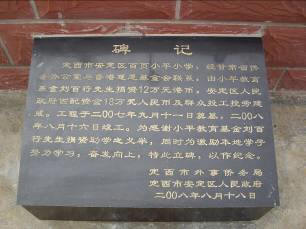 碑记
定西市安定区百页小平小学，经甘肃省侨
务办公室与香港道恩基金会联系，由小平教育
基金刘百行先生捐资12万元港币，安定区人民
政府匹配资金18万元人民币及群众投工投劳建
成。工程于二00七年九月十一日奠基，二00八
年八月十六日竣工。为感谢小平教育基金刘百
行先生捐资助学之义举，同时为激励本地学子
努力学习，奋发向上，特此立碑，以作纪念。
定西市外事侨务局
定西市安定区人民政府
二00八年八月十八日